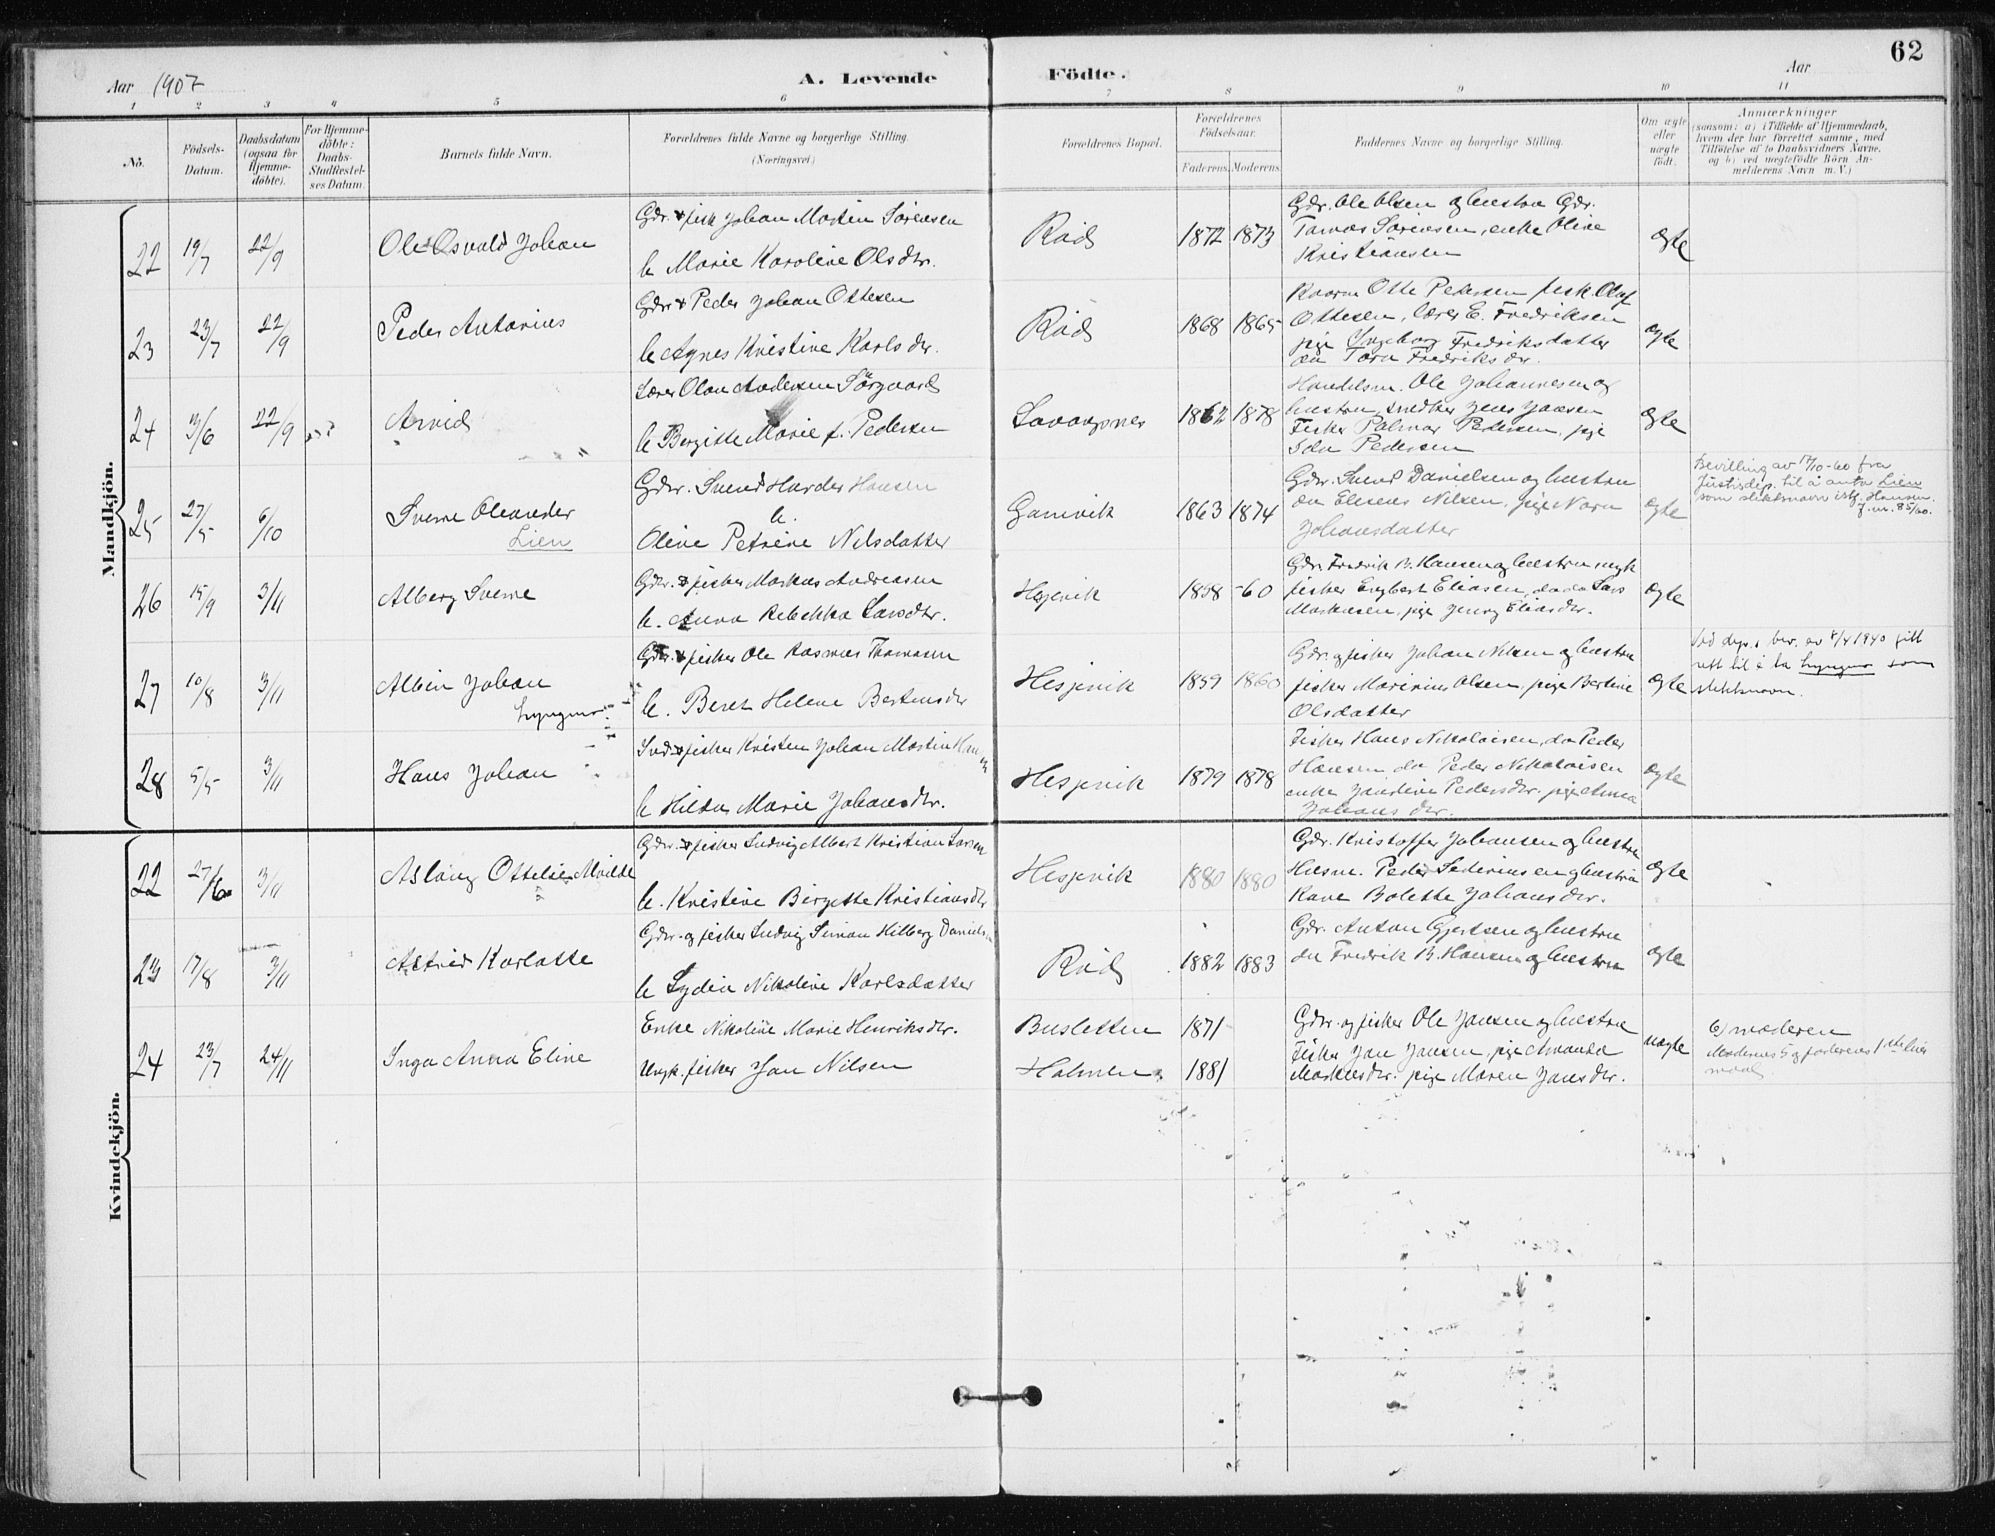 62
Aar 1907
A. Levende Födte.
Aar
1 2 3 4 5 6 7 8 9 10 11
No.
Födsels-Datum.
Daabsdatum (ogsaa for Hjemme-döbte).
For Hjemme-döbte: Daabs-Stadfæstel-ses Datum.
Barnets fulde Navn.
Forældrenes fulde Navne og borgerlige Stilling. (Næringsvei.)
Forældrenes Bopæl.
Forældrenes Födselsaar.
Faderens. Moderens.
Faddernes Navne og borgerlige Stilling.
Om ægte eller uægte födt.
Anmærkninger
(saasom: a) i Tilfælde af Hjemmedaab,
hvem der har forrettet samme, med
Tilföielse af to Daabsvidners Navne,
og b) ved uægtefödte Börn An-
melderens Navn m. V.)
Mandkjön.
22 19/7 22/9 Ole Osvald Johan
Gdr. & fisk Johan Martin Sørensen
h Marie Karoline Olsdtr.
Rød 1872 1873
Gdr. Ole Olsen og hustru Gdr.
Tomas Sørensen, enke Oline
Kristiansen
ægte
23 23/7 22/9 Peder Antonius
Gdr & Peder Johan Ottesen
h Agnes Kristine Karlsdtr.
Rød 1868 1865
Kaarm Otte Pedersen fisk. Olaf
Ottesen, lærer E. Fredriksen
pige Ingeborg Fredriksdatter
do Tora Fredriksdtr.
ægte
24 13/6 22/9 Arvid
Lærer Olau Andersen Sørgaard
h Bergitte Marie f. Pedersen
1862 1878
Handelsm. Ole Johannesen og
hustru, snedker Jens Jansen
Fisker Palmar Pedersen, pige
Ida Pedersen
ægte
25 27/5 6/10 Sverre Oleander
Lien
Gdr. Svend Harder Hansen
h.
Oline Petrine Nilsdatter
Gamvik 1863 1874
Gdr. Svend Danielsen og hustru
do Eleseus Nilsen, pige Nora
Johansdatter
ægte
Bevilling av 17/10-60 fra
Justisdep. til å anta Lien
som slektsnavn istf. Hansen.
J.nr. 85/60.
26 15/9 3/11 Alberg Sverre
Gdr. & fisker Markus Andreasen
h. Anna Rebekka Larsdtr.
Hesjevik 1858 -60
Gdr. Fredrik B. Hansen og hustru ungk
fisker Engbert Eliasen, do do Lars
Markusen, pige Jenny Eliasdtr.
ægte
27 10/8 3/11 Albin Johan
Lyngmo
Gdr. & fisker Ole Rasmus Thomasen
h. Beret Helene Bertensdtr
Hesjevik 1859 1860
Gdr. og fisker Johan Nilsen og hustru
fisker Marinius Olsen, pige Bertine
Olsdatter
ægte
Ved dep.s bev. av 8/4 1940 gitt
rett til å ta Lyngmo som
slektsnavn.
28 5/5 3/11 Hans Johan
Ind. & fisker Kristen Johan Martin Hansen
h Hilda Marie Johansdtr.
Hesjevik 1879 1878
Fisker Hans Nikolaisen, do Peder
Hansen do Peder Nikolaisen
enke Jendine Pedersdtr. pige Anna
Johansdtr.
ægte
Kvindekjön.
22 27/6 3/11 Aslaug Ottelie Milde
Gdr. & fisker Ludvig Albert Kristian Larsen
h. Kristine Birgitte Kristiansdtr
Hesjevik 1880 1880
Gdr. Kristoffer Johansen og hustru
Husm. Peder Sederiusen og hustru
Kone Bolette Johansdtr.
ægte
23 17/8 3/11 Astrid Karlotte
Gdr. og fisker Ludvig Simon Hilberg Daniels
h Lydia Nikoline Karlsdatter
Rød 1882 1883
Gdr. Anton Gjertsen og hustru
do Fredrik B. Hansen og hustru
ægte
24 23/7 24/11 Inga Anna Eline
Enke Nikoline Marie Henriksdtr.
Ungk. fisker Jan Nilsen
Busletten 1871
Holmen 1881
Gdr. og fisker Ole Jansen og hustru
Fisker Jan Jansen, pige Amanda
Markusdtr. pige Maren Jansdtr.
uægte
b) moderen
Moderens 5 og faderens 1ste leier
maal